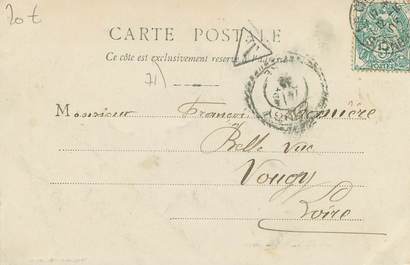 20 t
CARTE POSTALE
Ce côté est exclusivement réservé à
T
71
Monsieur François
Belle Vue
Vougy
Loire